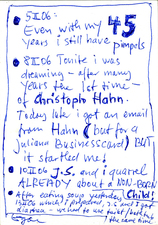 5 II 06:
Even with my 45
years i still have pimpels
8 II 06: Tonite i was
dreaming - after many
years the 1st time -
of Christoph Hahn.
Today late i got an email
from Hahn (but for a
Juliana Businesscard) BUT
it startled me!
10 II 06 J.S. and i quarel
ALREADY about a NON-BORN
Child!
After eating soup yesterday
15 II 06 which i prepared, J.S. and i got
diarrhea -
the same time.